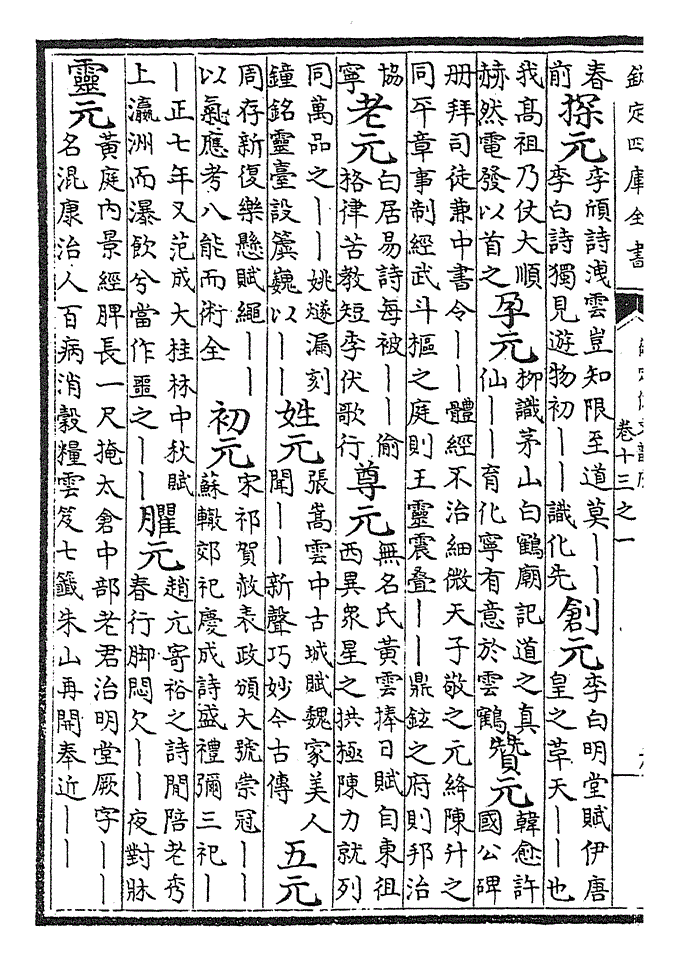 欽定四庫全書
卷十三之一
春
前
探元
李頎詩洩雲豈知限至道莫｜｜
李白詩獨見遊物初｜｜識化先
創元
李白明堂賦伊唐
皇之革天｜｜也
我高祖乃仗大順
赫然電發以首之
孕元
柳識茅山白鶴廟記道之真
仙｜｜育化寧有意於雲鶴
贊元
韓愈許
國公碑
册拜司徒兼中書令｜｜體經不治細微天子敬之元絳陳升之
同平章事制經武斗樞之庭則王靈震疊｜｜鼎鉉之府則邦治
協
寧
老元
白居易詩每被｜｜偷
格律苦教短李伏歌行
尊元
無名氏黃雲捧日賦自東徂
西異衆星之拱極陳力就列
同萬品之｜｜姚燧漏刻
鐘銘靈臺設簴巍以｜｜
姓元
張嵩雲中古城賦魏家美人
聞｜｜新聲巧妙今古傳
五元
周存新復樂懸賦繩｜｜
以氣應考八能而術全
初元
宋祁賀赦表政頒大號崇冠｜｜
蘇轍郊祀慶成詩盛禮彌三祀｜
｜正七年又范成大桂林中秋賦
上瀛洲而瀑飲兮當作噩之｜｜
臞元
趙元寄裕之詩閒陪老秀
春行脚悶欠｜｜夜對牀
靈元
黃庭內景經脾長一尺掩太倉中部老君治明堂厥字｜｜
名混康治人百病消穀糧雲笈七籤朱山再開奉近｜｜｜